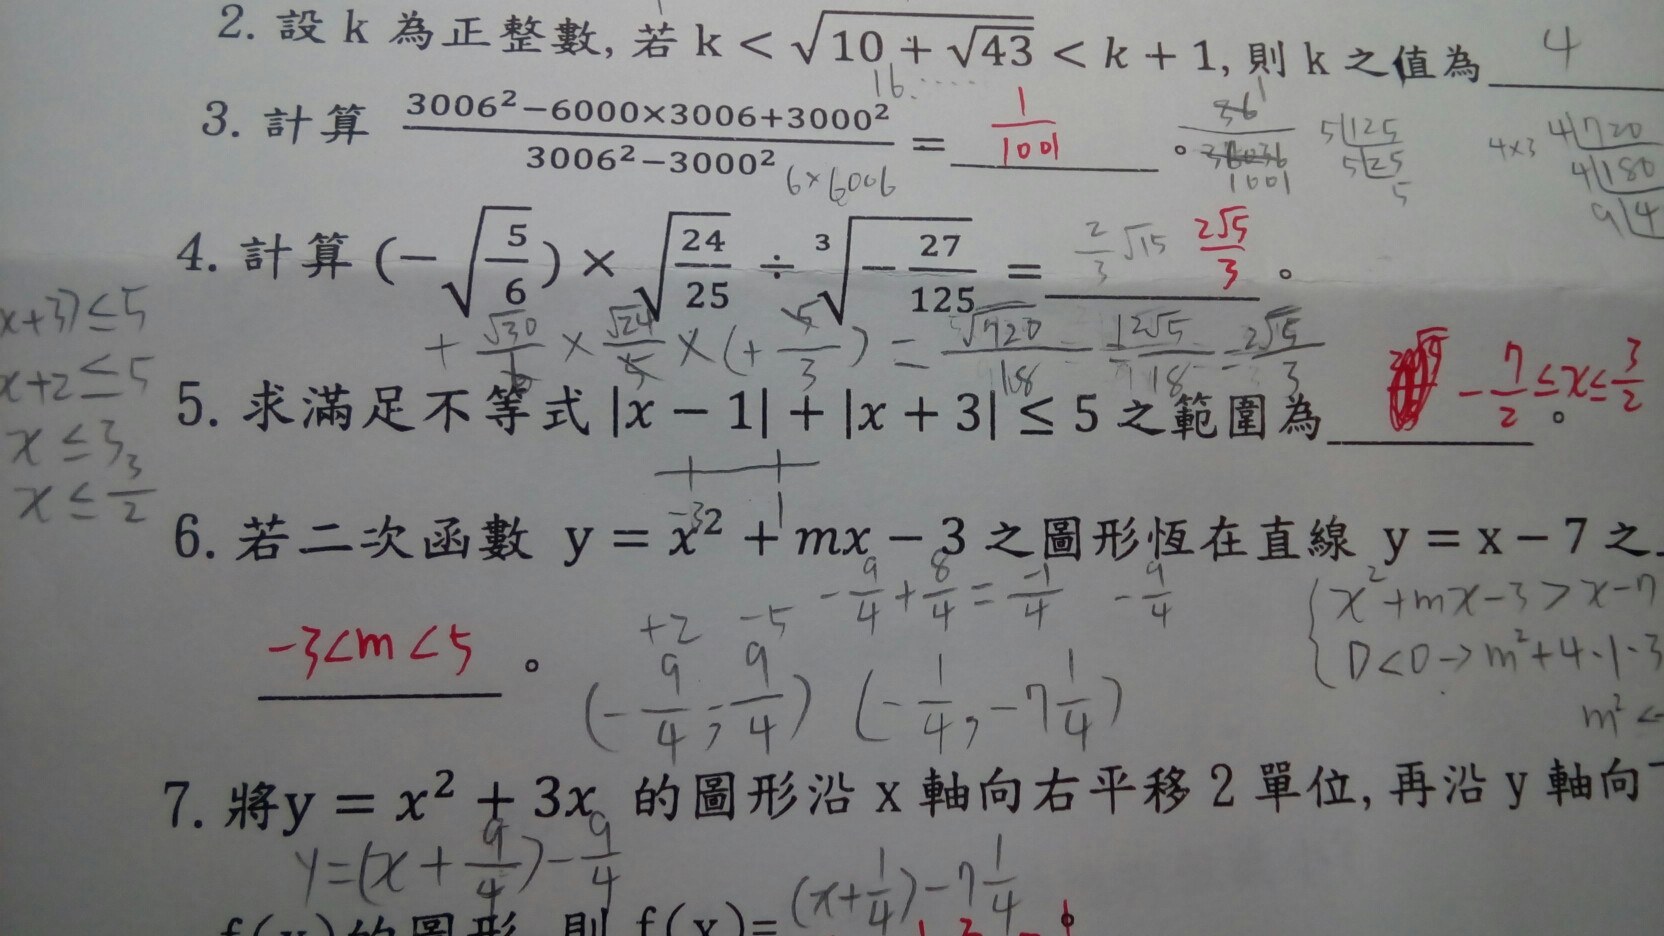 2. 設 k 為正整數, 若 k < √(10 + √43) < k + 1, 則 k 之值為 4
16.....
3. 計算 (3006² − 6000×3006 + 3000²)/(3006² − 3000²) = 1/1001 。
6×6006
1001
5 125
5 25
5
4×3
4 720
4 180
9 4
4. 計算 (−√(5/6)) × √(24/25) ÷ ³√(−27/125) = 2/3 √15 2√5/3 。
+ √30/6 × √24/5 × (+ 5/3) = √720/18 12√5/18 = 2√5/3
x+3) ≤ 5
x+2 ≤ 5
x ≤ 3
x ≤ 3/2
5. 求滿足不等式 |x − 1| + |x + 3| ≤ 5 之範圍為 −7/2 ≤ x ≤ 3/2 。
−3 1
6. 若二次函數 y = x² + mx − 3 之圖形恆在直線 y = x − 7 之
−9/4 + 8/4 = −1/4 −9/4
x² + mx − 3 > x − 7
D < 0 → m² + 4·1·3
m² <
−3 < m < 5 。
+2 −5
(−9/4, −9/4) (−1/4, −7 1/4)
7. 將 y = x² + 3x 的圖形沿 x 軸向右平移 2 單位, 再沿 y 軸向
y = (x + 9/4) − 9/4
(x + 1/4) − 7 1/4
f(x) 的圖形, 則 f(x) =